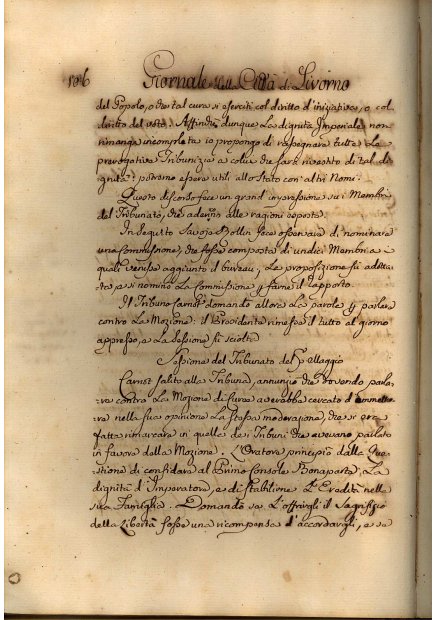 Giornale della Città di Livorno
del Popolo, o che tal cura si eserciti col diritto d'iniziativa, o col
diritto del voto. Affinché dunque La dignità Imperiale non
rimanga incompleta io propongo di rassegnare tutte Le
prerogative Tribunizie a colui che sarà rivestito di tal di-
gnità: potremo essere utili allo Stato con altri Nomi.
Questo discorso fece un grand'impressione su i Membri
del Tribunato, che aderino alle ragioni esposte.
In seguito Savoja Rollin fece osservare di nominare
una Commissione, che fosse composta di undici Membri a i
quali venisse aggiunto il bureau; La proposizione fù adotta-
ta, e si nominò La Commissione p farne il rapporto.
Il Tribuno Carnot domandò allora La parola p parlare
contro La Mozione: il Presidente rimesse il tutto al giorno
appresso, e La Sessione fù sciolta
Sessione del Tribunato del P Maggio
Carnot salito alla Tribuna, annunziò che dovendo parla-
re contro La Mozione di Curea averebbe cercato d'ammette-
re nella sua opinione La stessa moderazione, che si era
fatta rimarcare in quella de i Tribuni che avevano parlato
in favore della Mozione. L'Oratore principiò dalla Que-
stione di confidare al Primo Console Bonaparte La
dignità d'Imperatore, e di stabilirne L'Eredità nella
sua Famiglia. Domandò se L'offrirgli il Sagrifizio
della Libertà fosse una ricompensa d'accordargli, e se